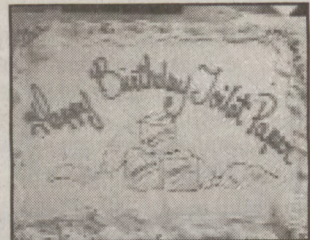 Happy Birthday Toilet Paper